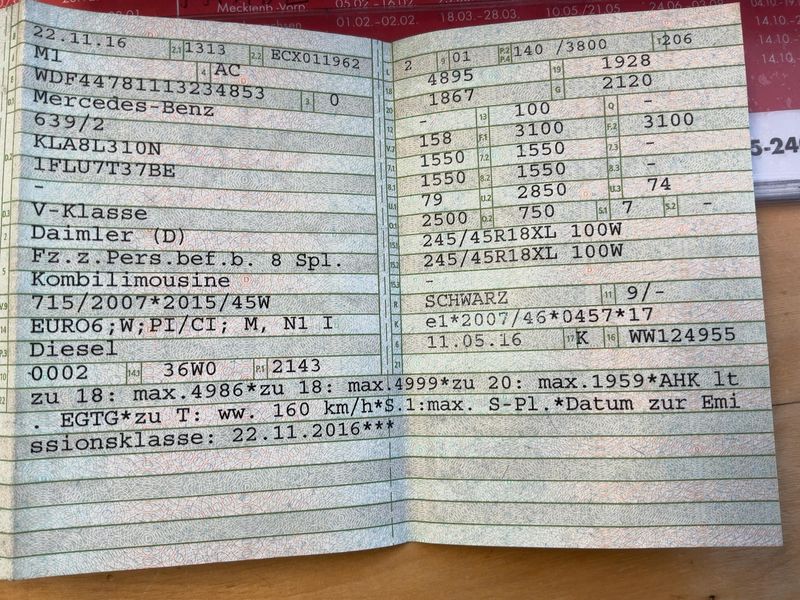 Mecklenb.-Vorp. 05.02.-16.02.
01.02.-02.02. 18.03.-28.03. 10.05./21.05.
14.10.-
14.10.-
14.10.-
5-24
22.11.16 2.1 1313 2.2 ECX011962
M1 4 AC
WDF44781113234853 3 0
Mercedes-Benz
639/2
KLA8L310N
1FLU7T37BE
-
V-Klasse
Daimler (D)
Fz.z.Pers.bef.b. 8 Spl.
Kombilimousine
715/2007*2015/45W
EURO6;W;PI/CI; M, N1 I
Diesel
0002 14.1 36W0 P.1 2143
L 2 9 01 P.2 P.4 140 /3800 T 206
18 4895 19 1928
20 1867 G 2120
12 - 13 100 Q -
V.7 158 F.1 3100 F.2 3100
7.1 1550 7.2 1550 7.3 -
8.1 1550 8.2 1550 8.3 -
U.1 79 U.2 2850 U.3 74
O.1 2500 O.2 750 S.1 7 S.2 -
15.1 245/45R18XL 100W
15.2 245/45R18XL 100W
15.3 -
R SCHWARZ 11 9/-
K e1*2007/46*0457*17
6 11.05.16 17 K 16 WW124955
21
zu 18: max.4986*zu 18: max.4999*zu 20: max.1959*AHK lt
. EGTG*zu T: ww. 160 km/h*S.1:max. S-Pl.*Datum zur Emi
ssionsklasse: 22.11.2016***